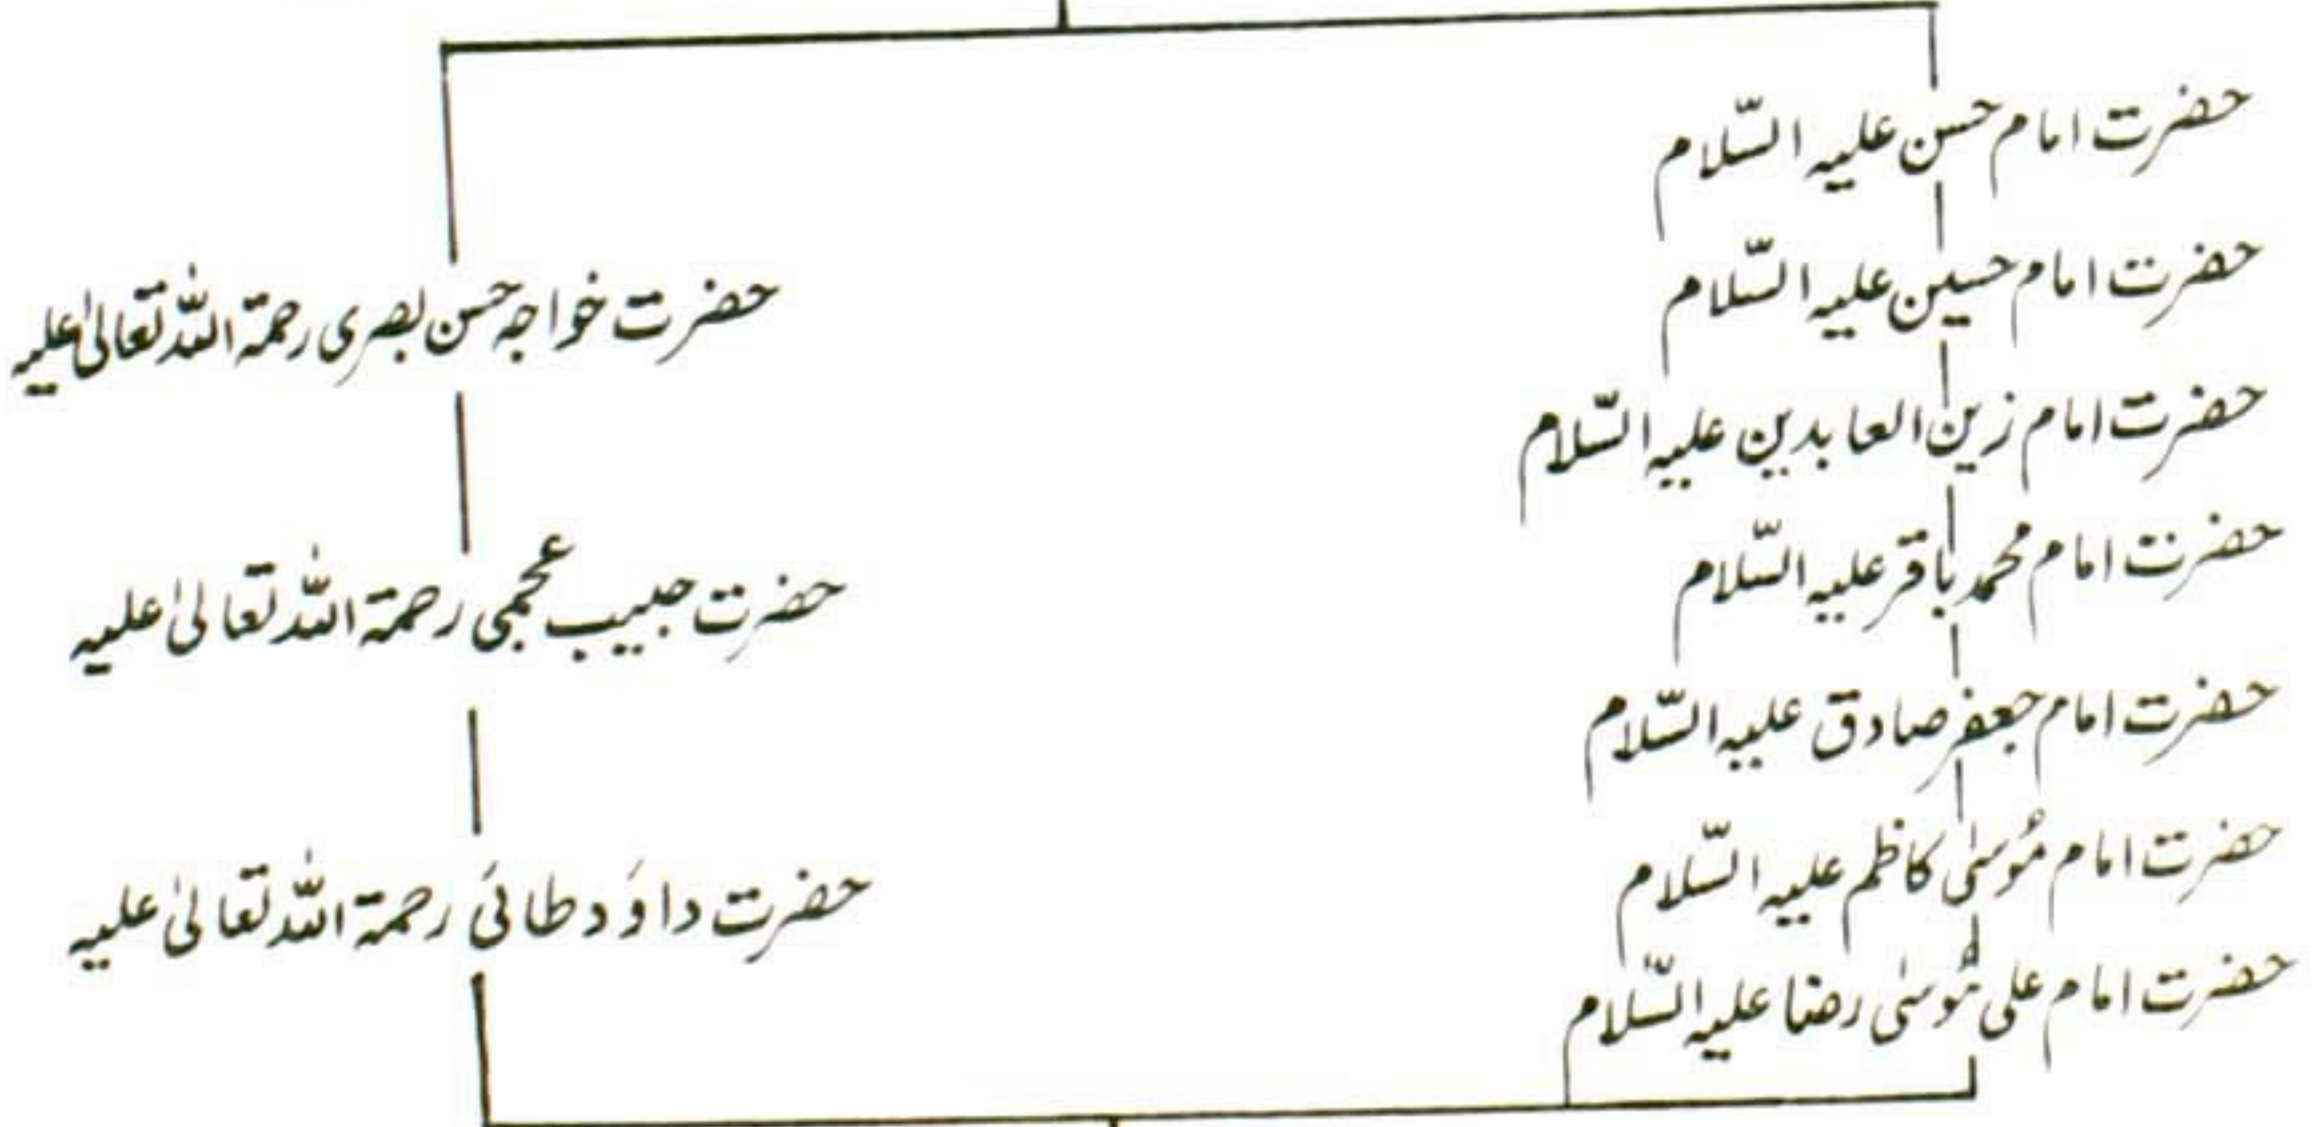 حضرت امام حسن علیہ السّلام
حضرت امام حسین علیہ السّلام
حضرت امام زین العابدین علیہ السّلام
حضرت امام محمد باقر علیہ السّلام
حضرت امام جعفر صادق علیہ السّلام
حضرت امام مُوسیٰ کاظم علیہ السّلام
حضرت امام علی مُوسیٰ رضا علیہ السّلام
حضرت خواجہ حسن بصری رحمۃ اللہ تعالیٰ علیہ
حضرت حبیب عجمی رحمۃ اللہ تعالیٰ علیہ
حضرت داؤد طائی رحمۃ اللہ تعالیٰ علیہ